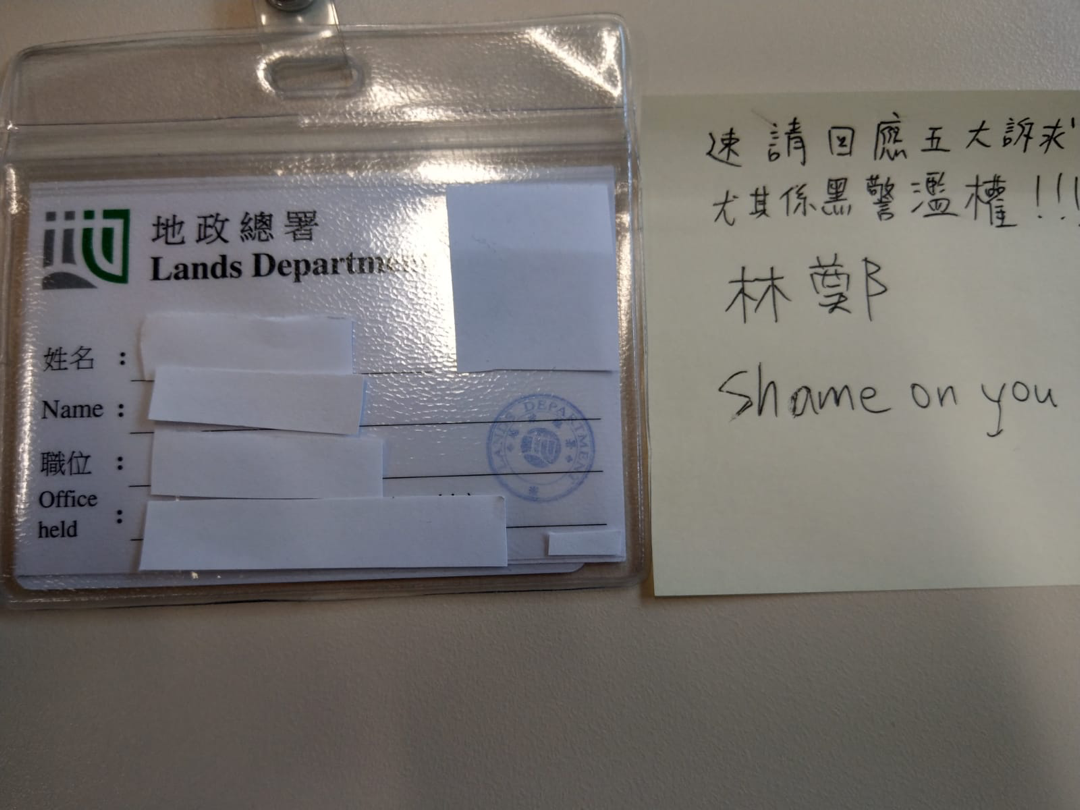 地政總署
Lands Department
姓名 :
Name :
職位 :
Office
held :
LANDS DEPARTMENT
速請回應五大訴求
尤其係黑警濫權!!!
林鄭
Shame on you